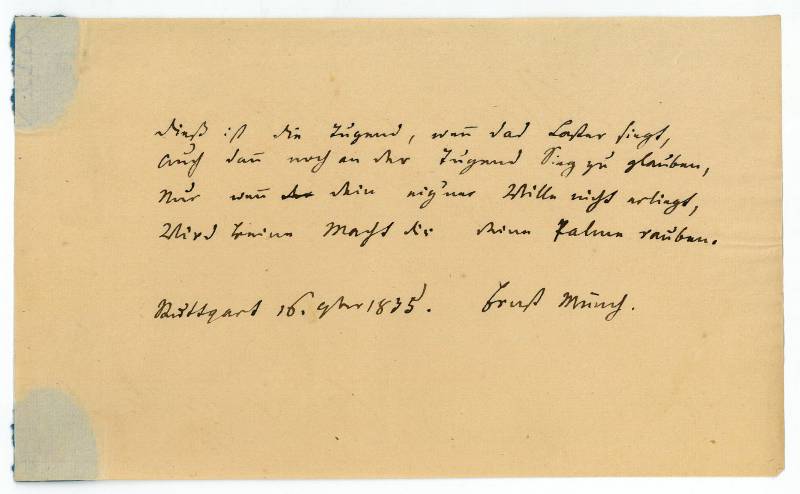 Dieß ist die Tugend, wen̄ das Laster siegt,
Auch dan̄ noch an der Tugend Sieg zu glauben,
Nur wen̄ der dein eig'ner Wille nicht erliegt,
Wird keine Macht dir deine Palme rauben.
Stuttgart 16. 9ber 1835. Ernst Münch.